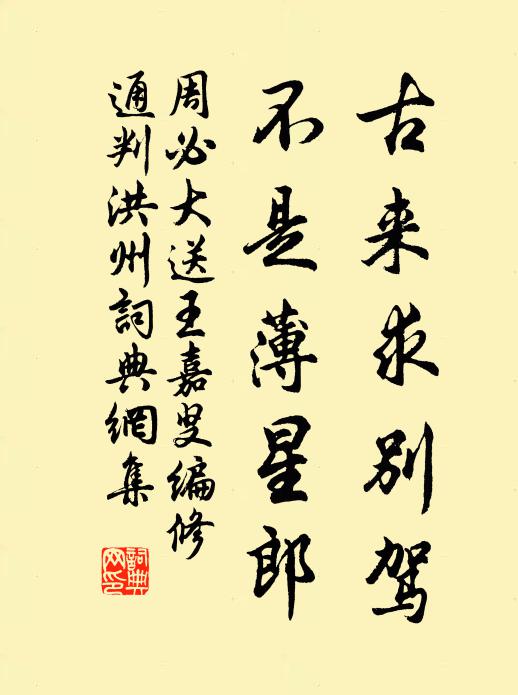 古来求别驾
不是薄星郎
周必大送王嘉叟编修
通判洪州詞典網集
詞典
网印